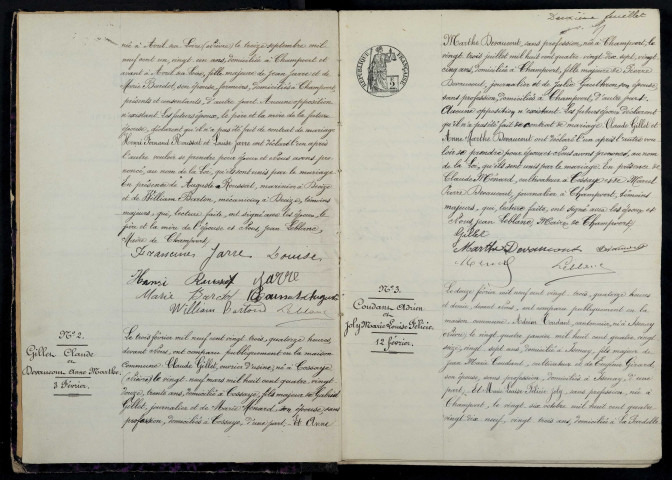 née à Avril sur Loire (Nièvre) le treize septembre mil
neuf cent un, vingt un ans, domiciliée à Champvert et
avant à Avril sur Loire, fille majeure de Jean Jarre et de
Marie Bardet, son épouse, fermiers, domiciliés à Champvert,
présents et consentants, d'autre part. Aucune opposition
n'existant. Les futurs époux, le père et la mère de la future
épouse, déclarent qu'il n'a pas été fait de contrat de mariage
Henri Fernand Roussot et Louise Jarre ont déclaré l'un après
l'autre vouloir se prendre pour époux et Nous avons pro-
noncé, au nom de la loi, qu'ils sont unis par le mariage
En présence de Auguste Roussot, marinier à Decize
et de William Berton, mécanicien à Decize, témoins
majeurs, qui, lecture faite, ont signé avec les époux, le
père et la mère de l'épouse et Nous Jean Leblanc,
Maire de Champvert.
Jarre Louise
Henri Roussot Jarre
Marie Bardet Roussot Auguste
William Berton Leblanc
N° 2.
Gillet Claude
et
Devaumont Anne Marthe
3 Février.
Le trois février mil neuf cent vingt trois, quatorze heures,
devant Nous, ont comparu publiquement en la maison
commune Claude Gillet, ouvrier d'usine, né à Cossaye
(Nièvre) le vingt neuf mars mil huit cent quatre vingt
douze, trente ans, domicilié à Cossaye, fils majeur de Gabriel
Gillet, journalier et de Marie Monard, son épouse, sans
profession, domiciliés à Cossaye, d'une part. Et Anne
Deuxième feuillet
RÉPUBLIQUE FRANÇAISE
Marthe Devaumont, sans profession, née à Champvert, le
vingt trois juillet mil huit cent quatre vingt dix sept, vingt
cinq ans, domiciliée à Champvert, fille majeure de Pierre
Devaumont, journalier et de Julie Gaulheron, son épouse,
sans profession, domiciliés à Champvert, d'autre part.
Aucune opposition n'existant. Les futurs époux déclarent
qu'il n'a pas été fait de contrat de mariage. Claude Gillet et
Anne Marthe Devaumont ont déclaré l'un après l'autre vou
loir se prendre pour époux et Nous avons prononcé, au nom
de la loi, qu'ils sont unis par le mariage. En présence de
Claude Monard, cultivateur à Cossaye et de Marcel
Pierre Devaumont, journalier à Champvert, témoins
majeurs, qui, lecture faite, ont signé avec les époux et
Nous Jean Leblanc, Maire de Champvert.
Gillet
Marthe Devaumont
Leblanc
N° 3.
Coudant Adrien
et
Joly Marie Louise Félicie
12 février.
Le douze février mil neuf cent vingt trois, quatorze heures
et demie, devant Nous, ont comparu publiquement en la
maison commune Adrien Coudant,
le vingt quatre janvier mil huit cent quatre vingt
seize, vingt sept ans, domicilié à fils majeur de
Jean Marie Coudant, cultivateur et de Eugénie Girard,
son épouse, sans profession, domiciliés à d'une
part. Et Marie Louise Félicie Joly, sans profession, née à
Champvert, le vingt six octobre mil huit cent quatre
vingt dix neuf, vingt trois ans, domiciliée à